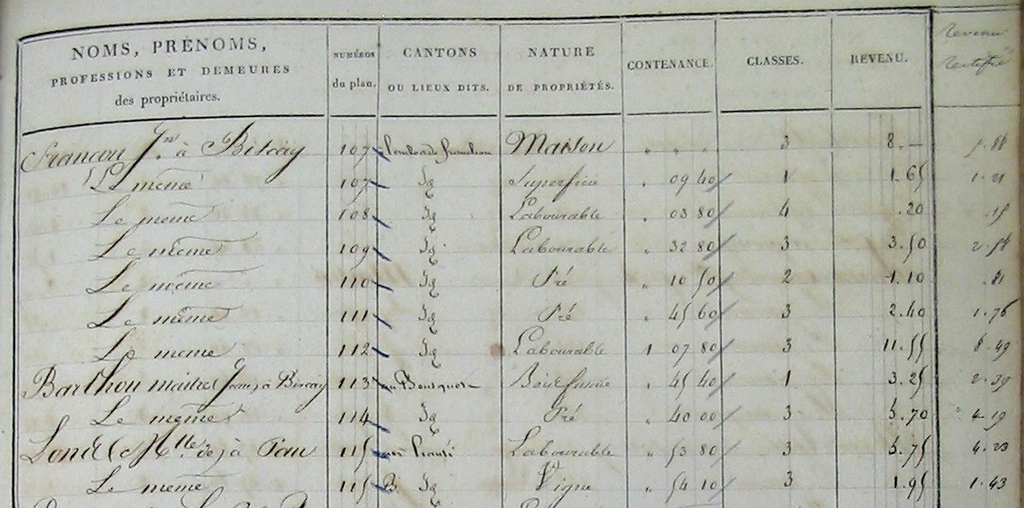 NOMS, PRÉNOMS, PROFESSIONS ET DEMEURES des propriétaires. NUMÉROS du plan. CANTONS OU LIEUX DITS. NATURE DE PROPRIÉTÉS. CONTENANCE. CLASSES. REVENU. Revenu
à 107 Maison " " " 3 8. —
Le même 107 Id Superficie " 09 40 1 1.65 1.21
Le même 108 Id Labourable " 03 80 4 .20 .15
Le même 109 Id Labourable " 32 80 3 3.50
Le même 110 Id Pré " 10 50 2 1.10 .81
Le même 111 Id Pré " 45 60 3 2.40 1.76
Le même 112 Id Labourable 1 07 80 3 11.55 8.49
Barthou maitre (Jean) à 113 au 45 40 1 3.25 2.39
Le même 114 Id Pré " 40 00 3 5.70 4.19
à Pau 115 Labourable " 53 80 3 5.75 4.23
Le même 115 B. Id Vigne " 54 10 3 1.95 1.43